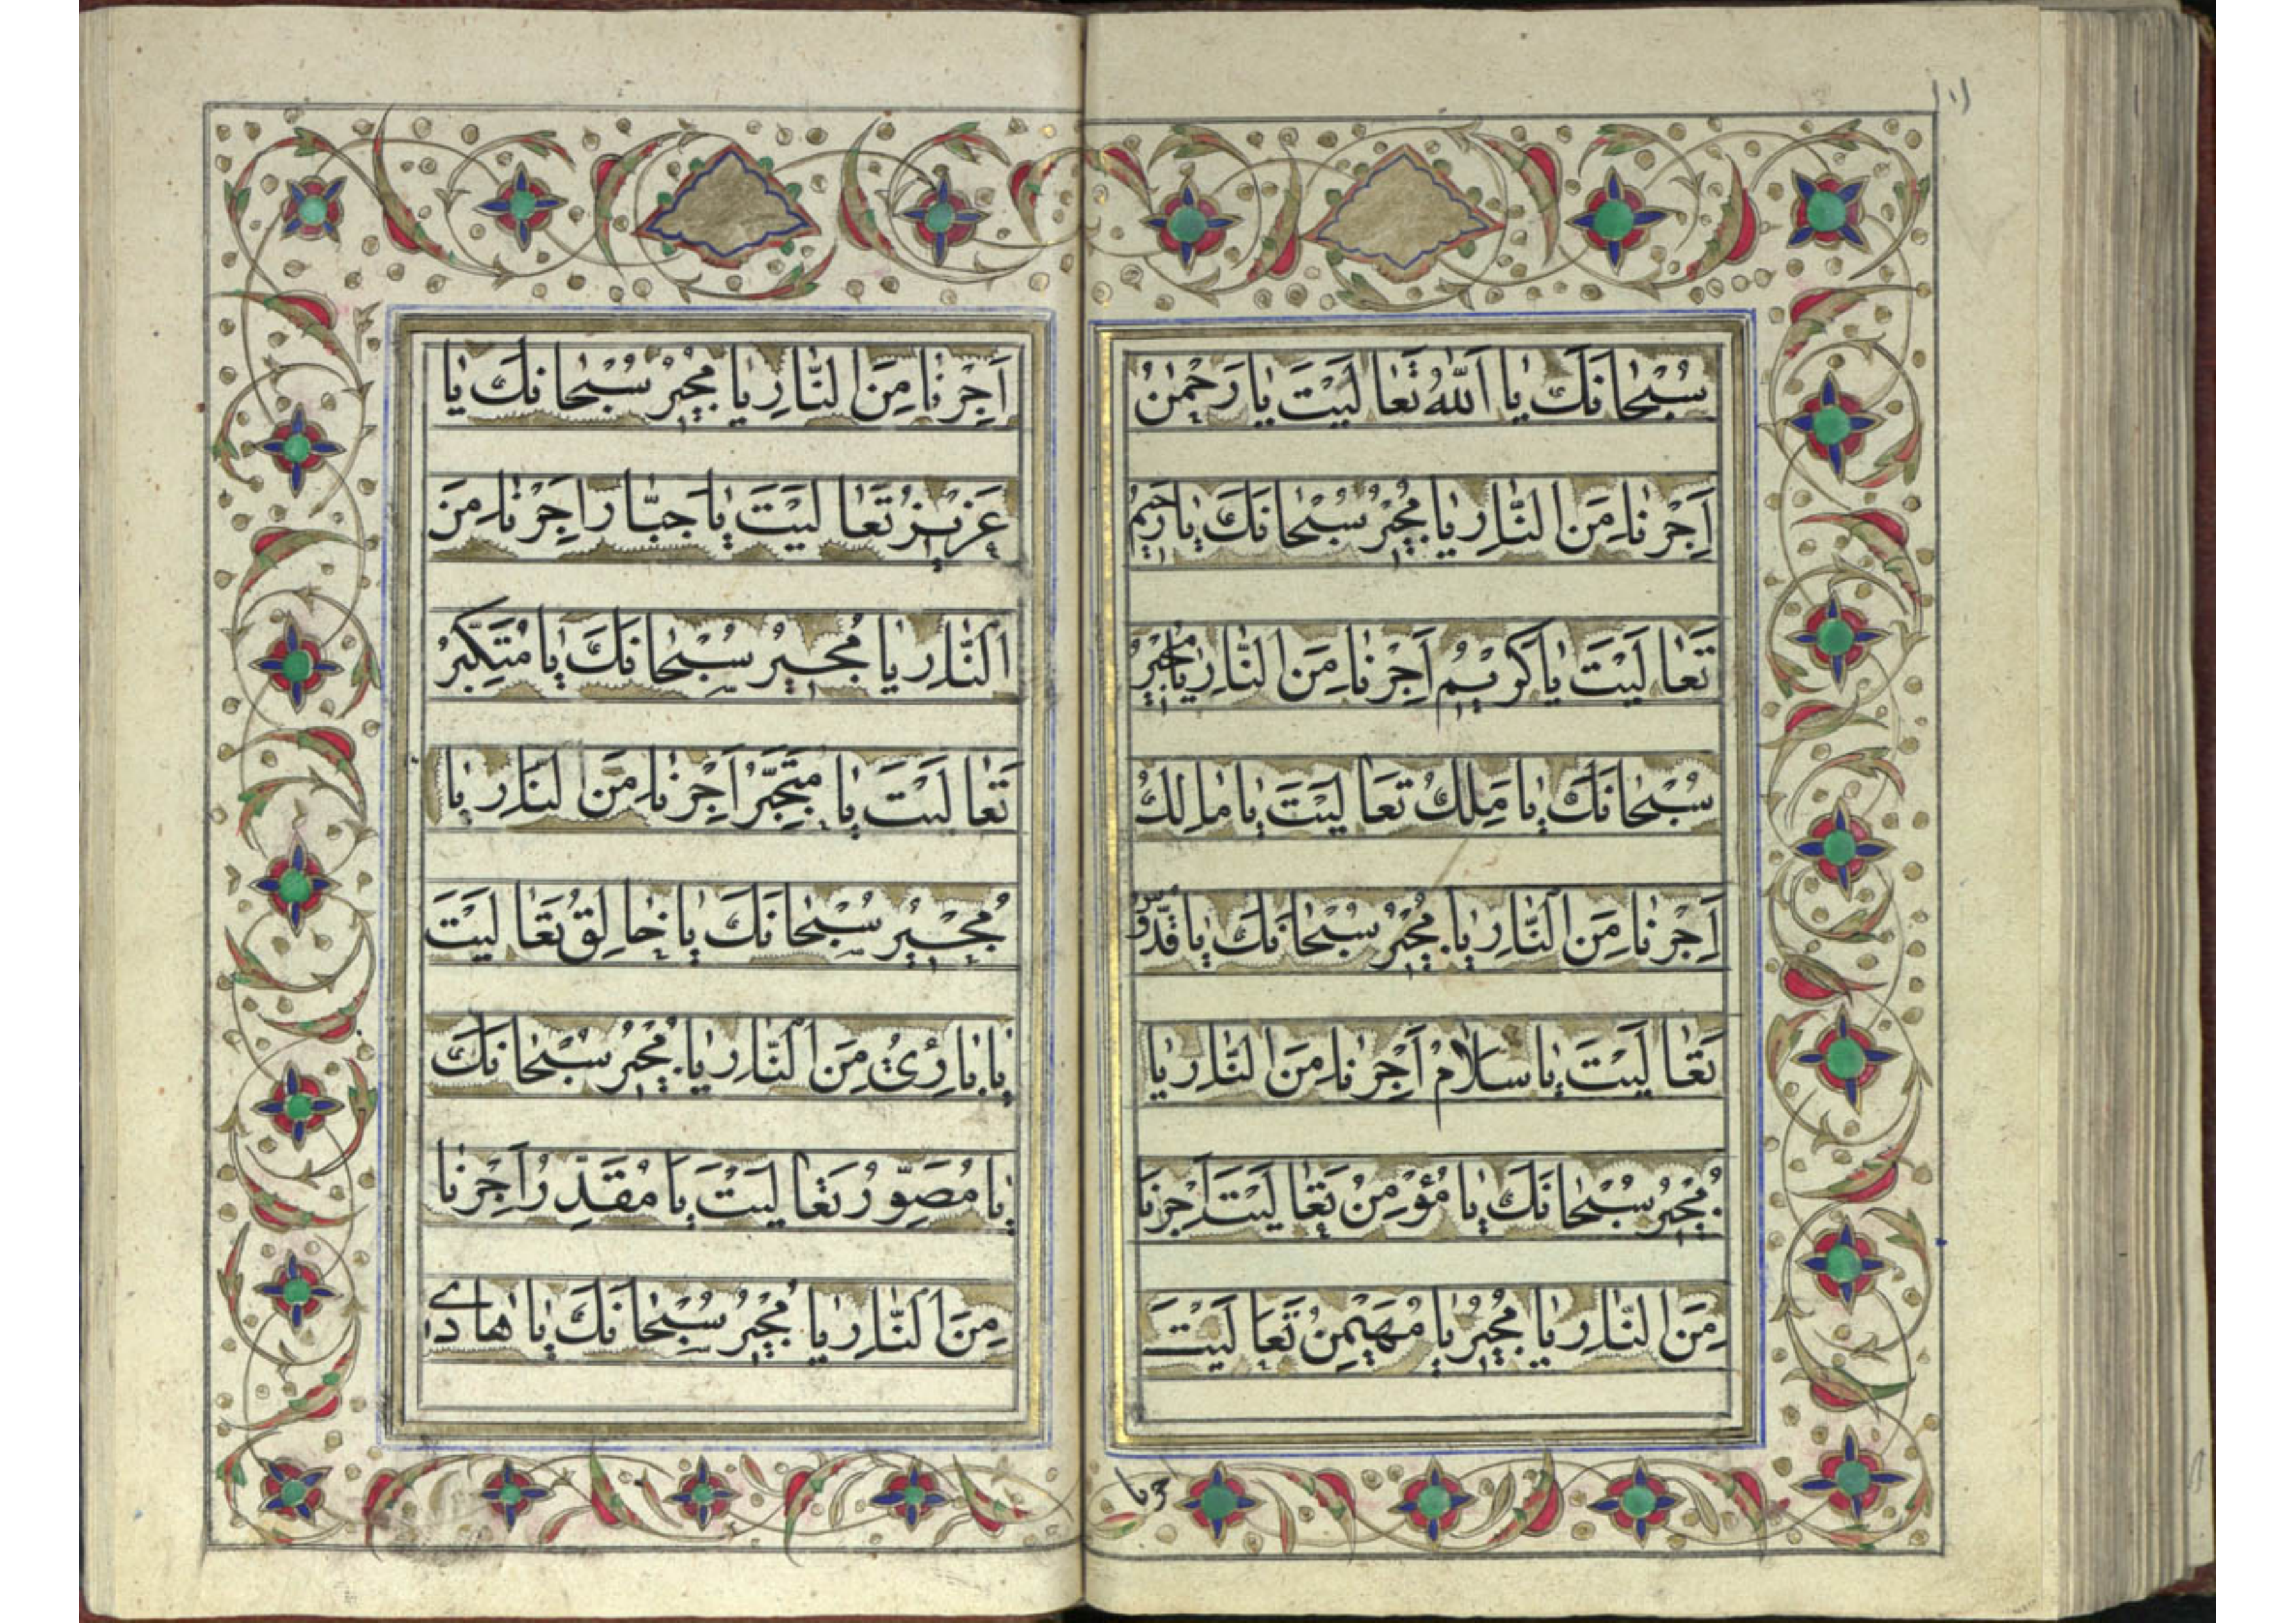 ١٠١
سُبْحٰانَكَ يٰا اَللّٰهُ تَعٰالَيْتَ يٰا رَحْمٰنُ
اَجِرْنٰا مِنَ النّٰارِ يٰا مُجيٖرُ سُبْحٰانَكَ يٰا رَحيٖمُ
تَعٰالَيْتَ يٰا كَريٖمُ اَجِرْنٰا مِنَ النّٰارِ يٰا مُجيٖرُ
سُبْحٰانَكَ يٰا مَلِكُ تَعٰالَيْتَ يٰا مٰالِكُ
اَجِرْنٰا مِنَ النّٰارِ يٰا مُجيٖرُ سُبْحٰانَكَ يٰا قُدّوُسُ
تَعٰالَيْتَ يٰا سَلٰامُ اَجِرْنٰا مِنَ النّٰارِ يٰا
مُجيٖرُ سُبْحٰانَكَ يٰا مُؤْمِنُ تَعٰالَيْتَ اَجِرْنٰا
مِنَ النّٰارِ يٰا مُجيٖرُ يٰا مُهَيْمِنُ تَعٰالَيْتَ
اجرنا
اَجِرْنٰا مِنَ النّٰارِ يٰا مُجيٖرُ سُبْحٰانَكَ يٰا
عَزيٖزُ تَعٰالَيْتَ يٰا جَبّٰارُ اَجِرْنٰا مِنَ
النّٰارِ يٰا مُجيٖرُ سُبْحٰانَكَ يٰا مُتَكَبِّرُ
تَعٰالَيْتَ يٰا مُتَجَبِّرُ اَجِرْنٰا مِنَ النّٰارِ يٰا
مُجيٖرُ سُبْحٰانَكَ يٰا خٰالِقُ تَعٰالَيْتَ
يٰا بٰارِئُ مِنَ النّٰارِ يٰا مُجيٖرُ سُبْحٰانَكَ
يٰا مُصَوِّرُ تَعٰالَيْتَ يٰا مُقَدِّرُ اَجِرْنٰا
مِنَ النّٰارِ يٰا مُجيٖرُ سُبْحٰانَكَ يٰا هٰادي